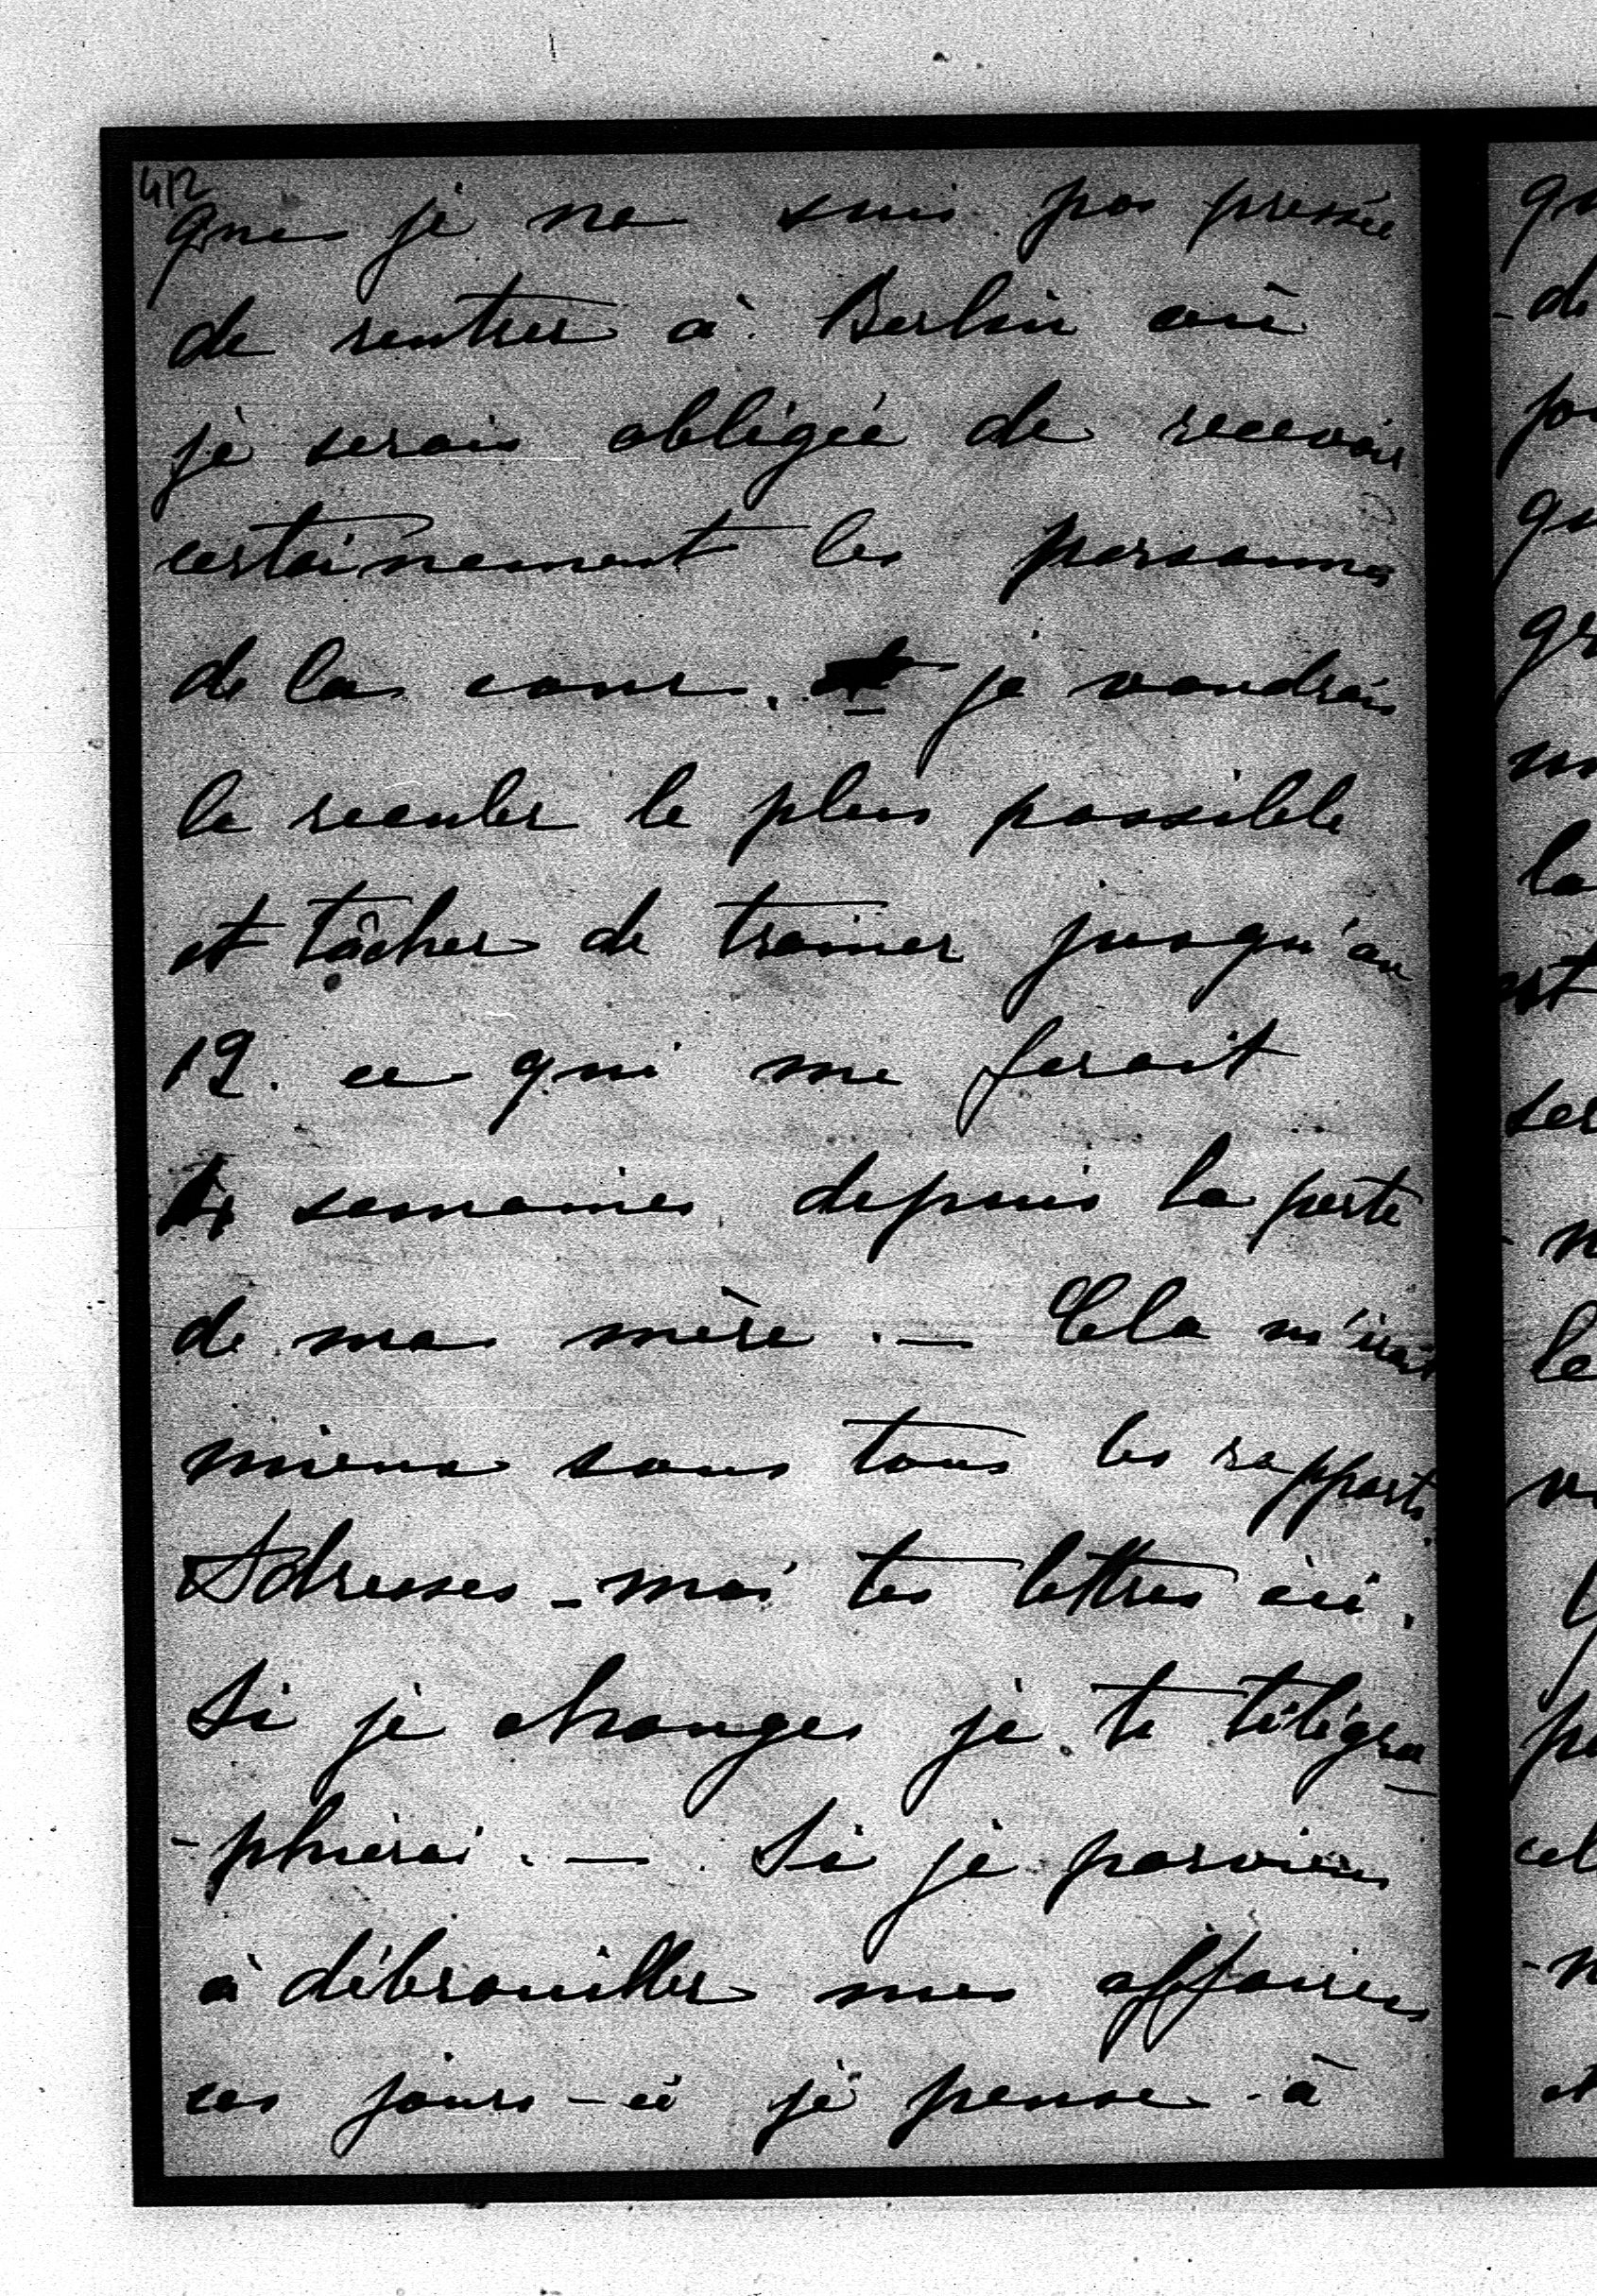 412
que je ne suis pas pressée
de rentrer à Berlin où
je serais obligée de recevoir
certainement les personnes
de la cour. et je voudrais
le reculer le plus possible
et tâcher de trainer jusqu'au
19. ce qui me ferait
semaines depuis la perte
de ma mère. — Cela m'irait
mieux sous tous les rapports.
Adresses-moi tes lettres ici.
Si je change je te télégra-
-phierai. — Si je parviens
à débrouiller mes affaires
ces jours-ci je pense à